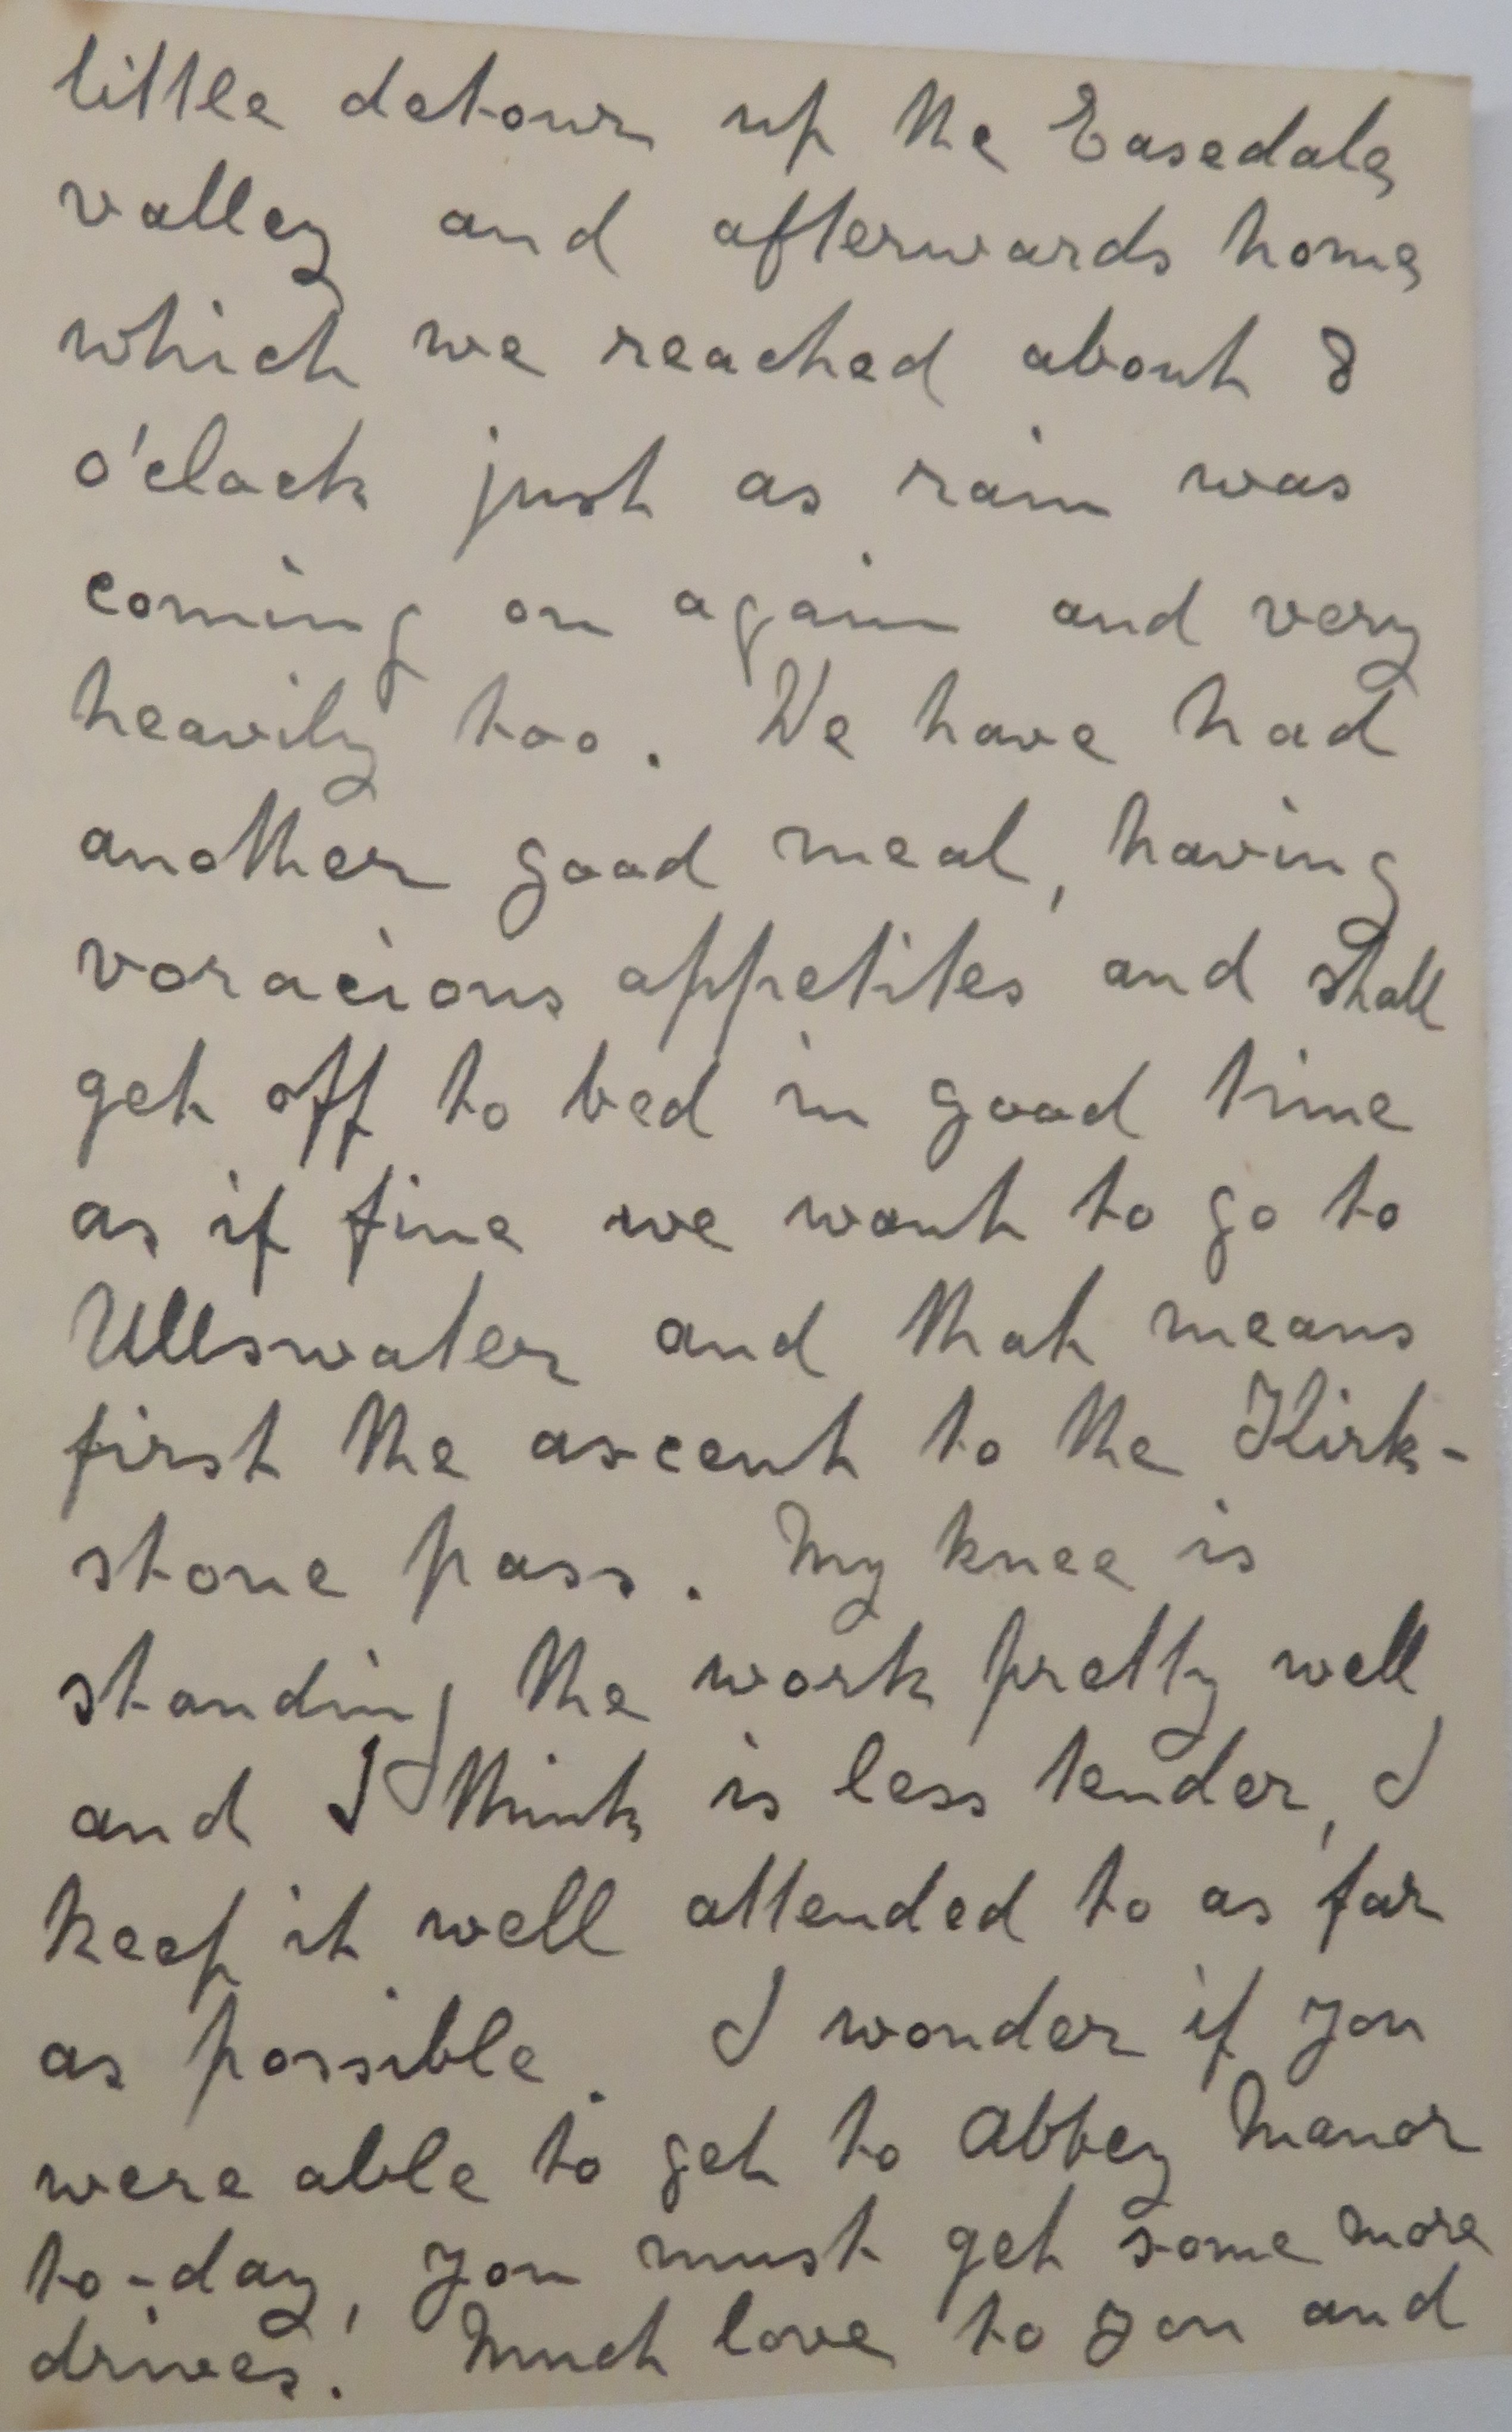 little detour up the Easedale
valley and afterwards home
which we reached about 8
o'clock just as rain was
coming on again and very
heavily too. We have had
another good meal, having
voracious appetites and shall
get off to bed in good time
as if fine we want to go to
Ullswater and that means
first the ascent to the Kirk-
stone pass. My knee is
standing the work pretty well
and I think is less tender, I
keep it well attended to as far
as possible. I wonder if you
were able to get to Abbey Manor
to-day, you must get some more
drives. Much love to you and